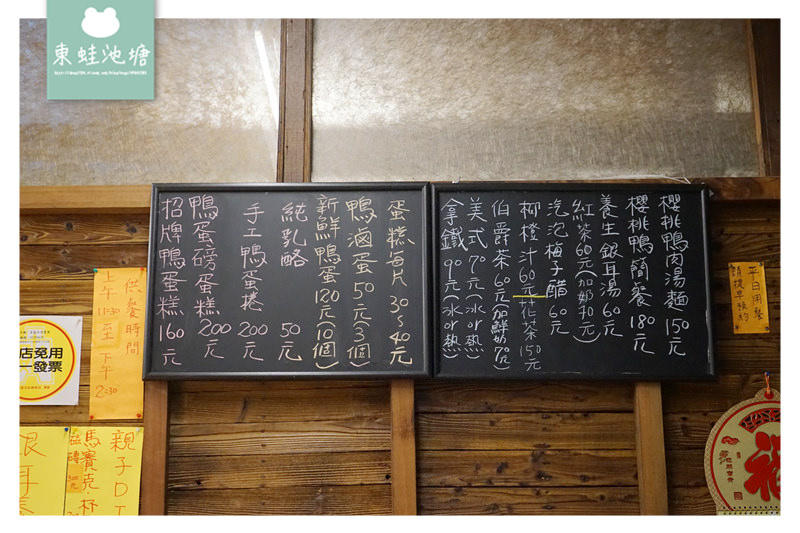 東蛙池塘
櫻桃鴨肉湯麵 150元
櫻桃鴨簡餐 180元
養生銀耳湯 60元
紅茶60元(加奶70元)
泡泡梅子醋 60元
柳橙汁60元 花茶150元
伯爵茶60元(加鮮奶70元)
美式70元(冰or熱)
拿鐵90元(冰or熱)
蛋糕每片30~40元
鴨滷蛋50元(3個)
新鮮鴨蛋120元(10個)
純乳酪 50元
手工鴨蛋捲 200元
鴨蛋磅蛋糕 200元
招牌鴨蛋糕160元
平日用餐
請提早預約
供餐時間
上午11:30至下午2:30
店免用
一發票
親子D
馬賽克.杯
磁磚
銀耳
福